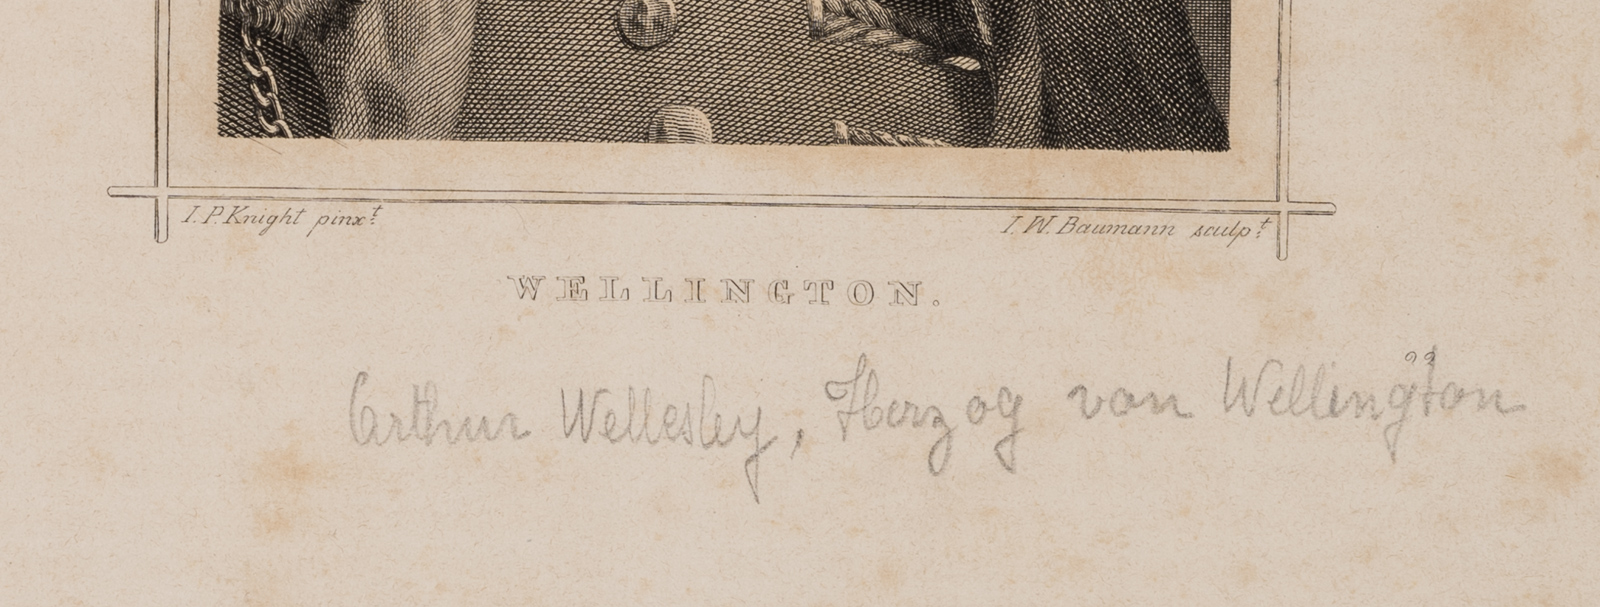 I. P. Knight pinxt.
I. W. Baumann sculpt.
WELLINGTON.
Arthur Wellesley, Herzog von Wellington